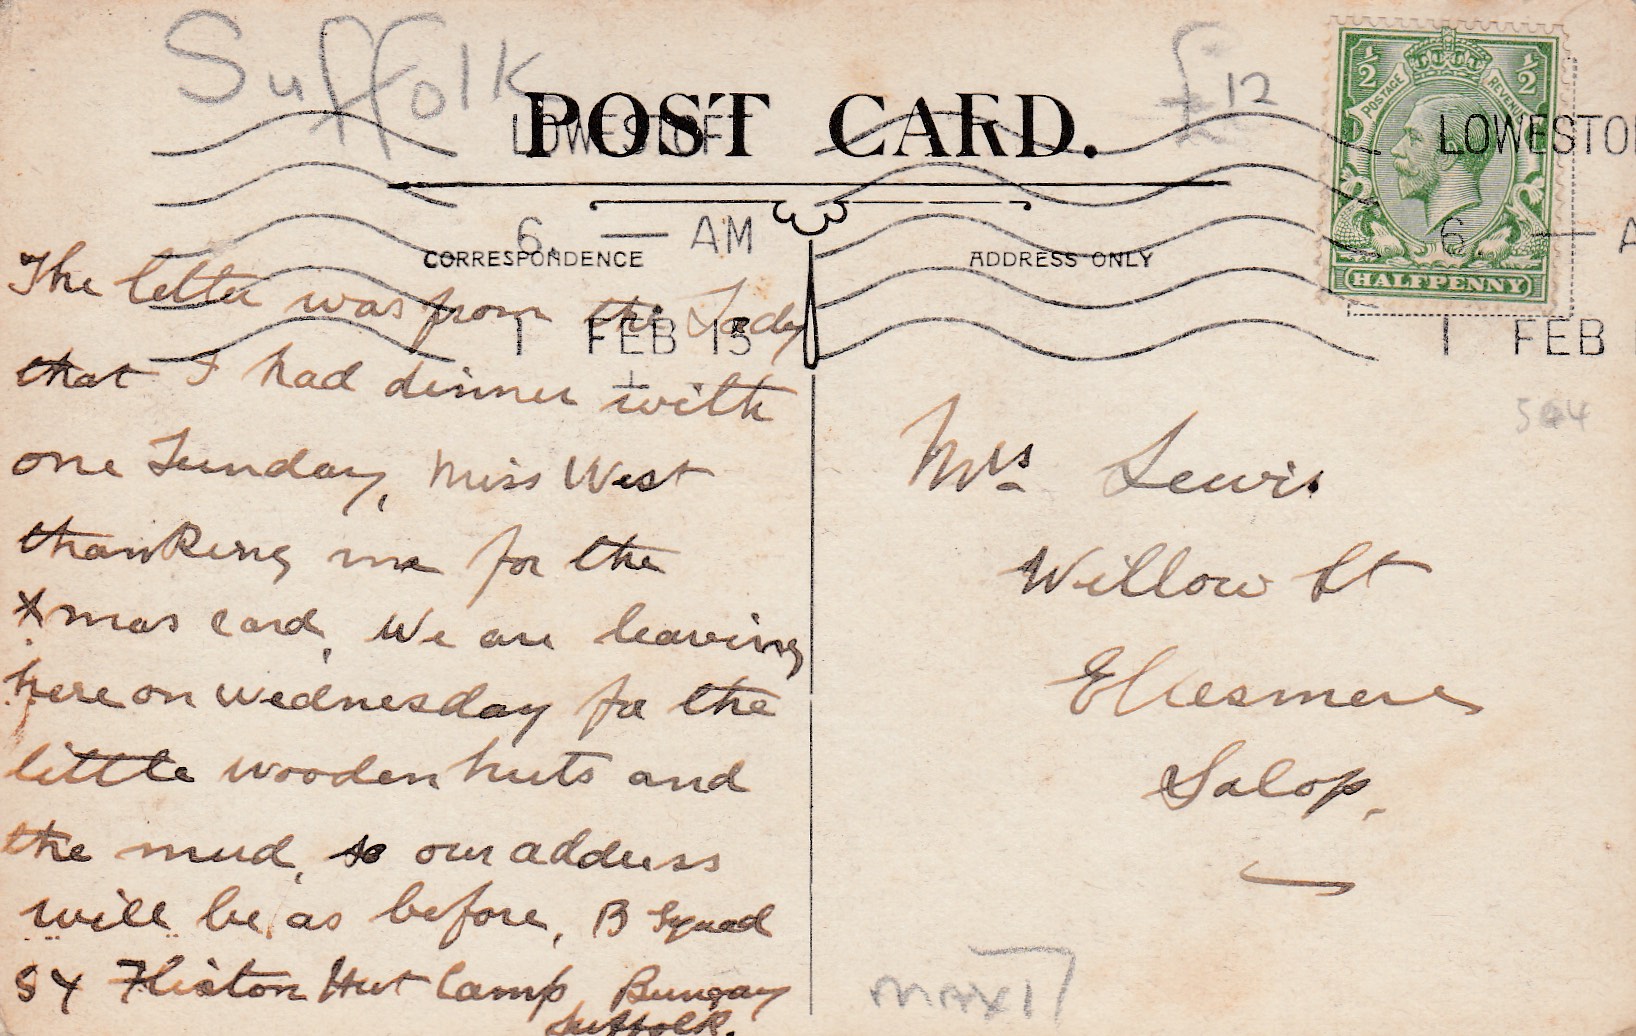 Suffolk
£12
POST CARD.
LOWESTOFT
6. — AM
1 FEB 15
½ ½
POSTAGE REVENUE
HALFPENNY
LOWESTO
6. — A
1 FEB
CORRESPONDENCE
ADDRESS ONLY
The letter was from the Lady
that I had dinner with
one Sunday, Miss West
thanking me for the
Xmas card, We are leaving
here on Wednesday for the
little wooden huts and
the mud, so our address
will be as before, B Squad
S Y Flixton Hut Camp, Bungay
Suffolk.
Mrs Lewis
Willow St
Ellesmere
Salop.